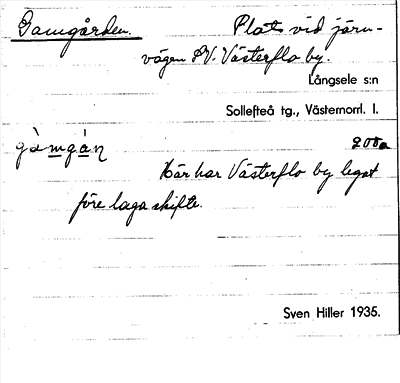 Gamgården. Plats vid järn-
vägen SV. Västerflo by.
Långsele s:n
Sollefteå tg., Västernorrl. l.
gàmgán 208a
Här har Västerflo by legat
före laga skifte.
Sven Hiller 1935.